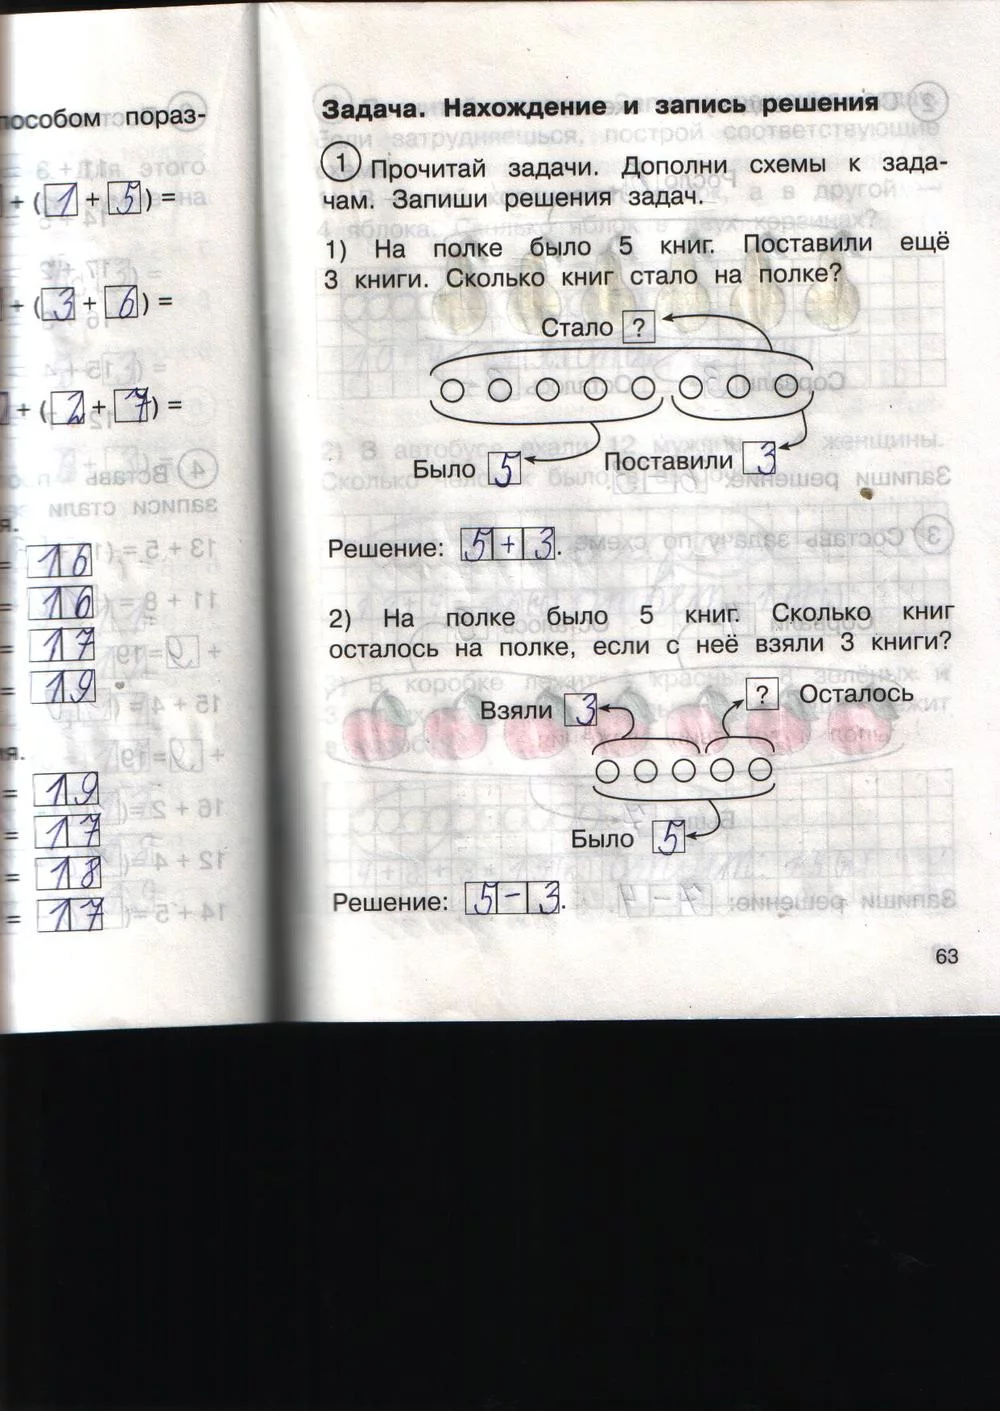 пособом пораз-
+ (1 + 5) =
+ (3 + 6) =
+ (2 + 7) =
я.
= 16
= 16
= 17
= 19
ия.
= 19
= 17
= 18
= 17
Задача. Нахождение и запись решения
1 Прочитай задачи. Дополни схемы к зада-
чам. Запиши решения задач.
1) На полке было 5 книг. Поставили ещё
3 книги. Сколько книг стало на полке?
Стало ?
Было 5 Поставили 3
Решение: 5 + 3.
2) На полке было 5 книг. Сколько книг
осталось на полке, если с неё взяли 3 книги?
Взяли 3 ? Осталось
Было 5
Решение: 5 - 3.
63